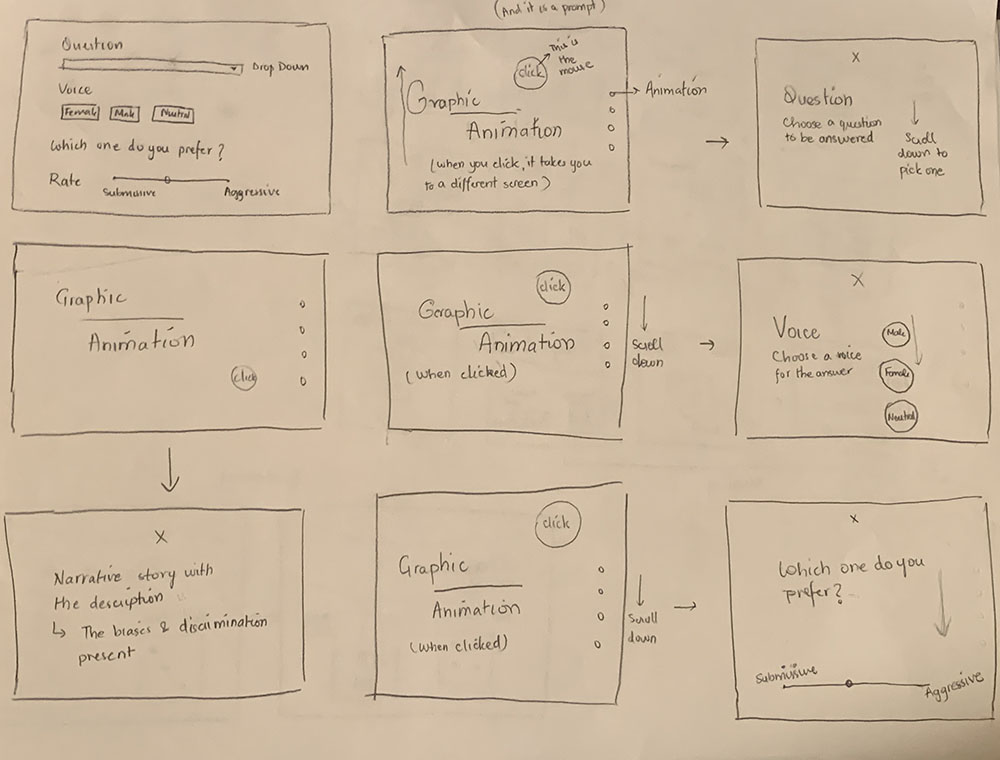 (And it is a prompt)
Question
Drop Down
Voice
Female Male Neutral
Which one do you prefer?
Rate
Submissive Aggressive
click
This is
the
mouse
Graphic
Animation
(when you click, it takes you
to a different screen)
Animation
X
Question
Choose a question
to be answered
Scroll
down to
pick one
Graphic
Animation
click
click
Graphic
Animation
(when clicked)
Scroll
down
X
Voice
Choose a voice
for the answer
Male
Female
Neutral
X
Narrative story with
the description
↳ The biases & discrimination
present
click
Graphic
Animation
(when clicked)
Scroll
down
X
Which one do you
prefer?
Submissive
Aggressive